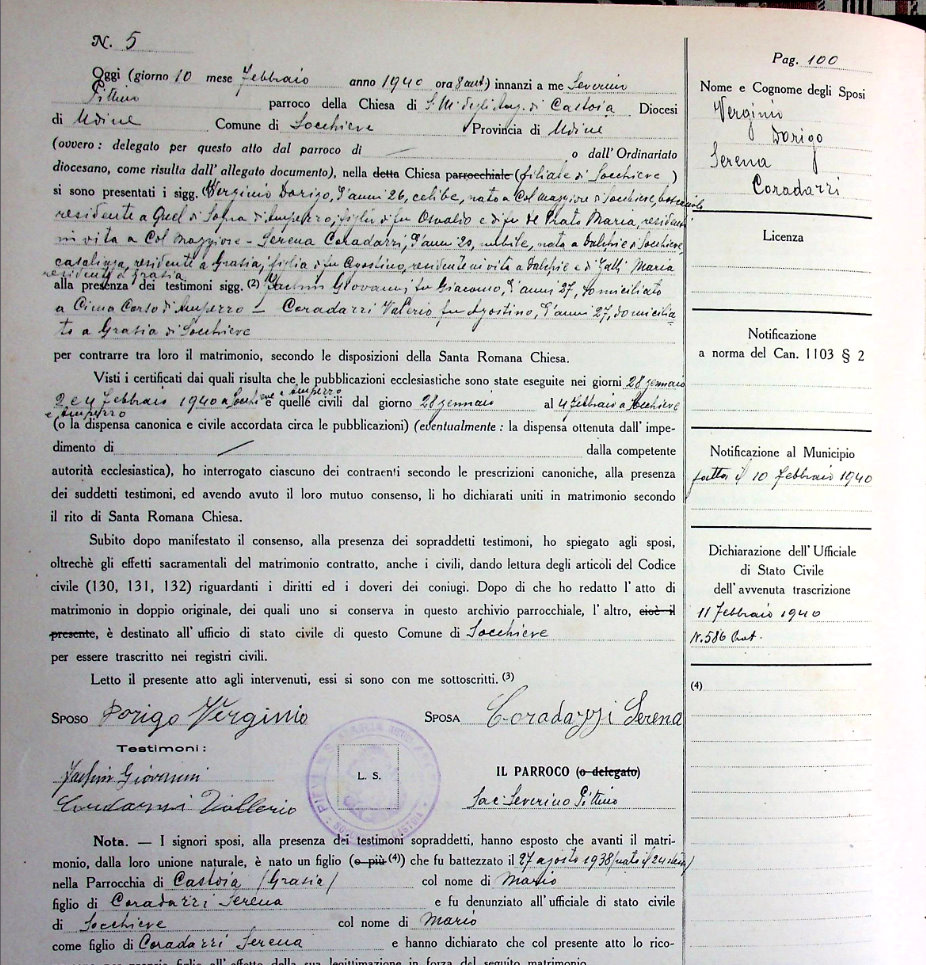 N. 5
Pag. 100
Oggi (giorno 10 mese Febbraio anno 1940 ora 8 ant) innanzi a me Severino
Pittino parroco della Chiesa di S. M. degli Ang. di Castoia Diocesi
di Udine Comune di Socchieve Provincia di Udine
(ovvero: delegato per questo atto dal parroco di — o dall'Ordinariato
diocesano, come risulta dall'allegato documento), nella detta Chiesa parrocchiale (filiale di Socchieve)
si sono presentati i sigg. Verginio Dorigo, d'anni 26, celibe, nato a Col maggiore di Socchieve,
residente a di Ampezzo, figlio di fu Osvaldo e di fu De Prato Maria, residenti
in vita a Col Maggiore - Serena Coradazzi, d'anni 20, nubile, nata a di Socchieve,
casalinga, residente a Grasia, figlia di fu Agostino, residente in vita a e di Maria
residente a Grasia
alla presenza dei testimoni sigg. (2) Giovanni fu Giacomo, d'anni 27, domiciliato
a Cima Corso di Ampezzo - Coradazzi Valerio fu Agostino, d'anni 27, domicilia-
to a Grasia di Socchieve
per contrarre tra loro il matrimonio, secondo le disposizioni della Santa Romana Chiesa.
Visti i certificati dai quali risulta che le pubblicazioni ecclesiastiche sono state eseguite nei giorni 28 gennaio
2 e 4 Febbraio 1940 a Socchieve e Ampezzo e quelle civili dal giorno 28 gennaio al 4 Febbraio a Socchieve
e Ampezzo
(o la dispensa canonica e civile accordata circa le pubblicazioni) (eventualmente: la dispensa ottenuta dall'impe-
dimento di dalla competente
autorità ecclesiastica), ho interrogato ciascuno dei contraenti secondo le prescrizioni canoniche, alla presenza
dei suddetti testimoni, ed avendo avuto il loro mutuo consenso, li ho dichiarati uniti in matrimonio secondo
il rito di Santa Romana Chiesa.
Subito dopo manifestato il consenso, alla presenza dei sopraddetti testimoni, ho spiegato agli sposi,
oltrechè gli effetti sacramentali del matrimonio contratto, anche i civili, dando lettura degli articoli del Codice
civile (130, 131, 132) riguardanti i diritti ed i doveri dei coniugi. Dopo di che ho redatto l'atto di
matrimonio in doppio originale, dei quali uno si conserva in questo archivio parrocchiale, l'altro, cioè il
presente, è destinato all'ufficio di stato civile di questo Comune di Socchieve
per essere trascritto nei registri civili.
Letto il presente atto agli intervenuti, essi si sono con me sottoscritti. (3)
SPOSO Dorigo Verginio SPOSA Coradazzi Serena
Testimoni:
Giovanni
Coradazzi Vallerio
L. S.
IL PARROCO (o delegato)
Sac Severino Pittino
Nota. — I signori sposi, alla presenza dei testimoni sopraddetti, hanno esposto che avanti il matri-
monio, dalla loro unione naturale, è nato un figlio (o più (4)) che fu battezzato il 27 agosto 1938 (nato il 24
nella Parrocchia di Castoia (Grasia) col nome di Mario
figlio di Coradazzi Serena e fu denunziato all'ufficiale di stato civile
di Socchieve col nome di Mario
come figlio di Coradazzi Serena e hanno dichiarato che col presente atto lo rico-
Nome e Cognome degli Sposi
Verginio
Dorigo
Serena
Coradazzi
Licenza
Notificazione
a norma del Can. 1103 § 2
Notificazione al Municipio
fatta il 10 febbraio 1940
Dichiarazione dell'Ufficiale
di Stato Civile
dell'avvenuta trascrizione
11 Febbraio 1940
N. 586 Prot.
(4)